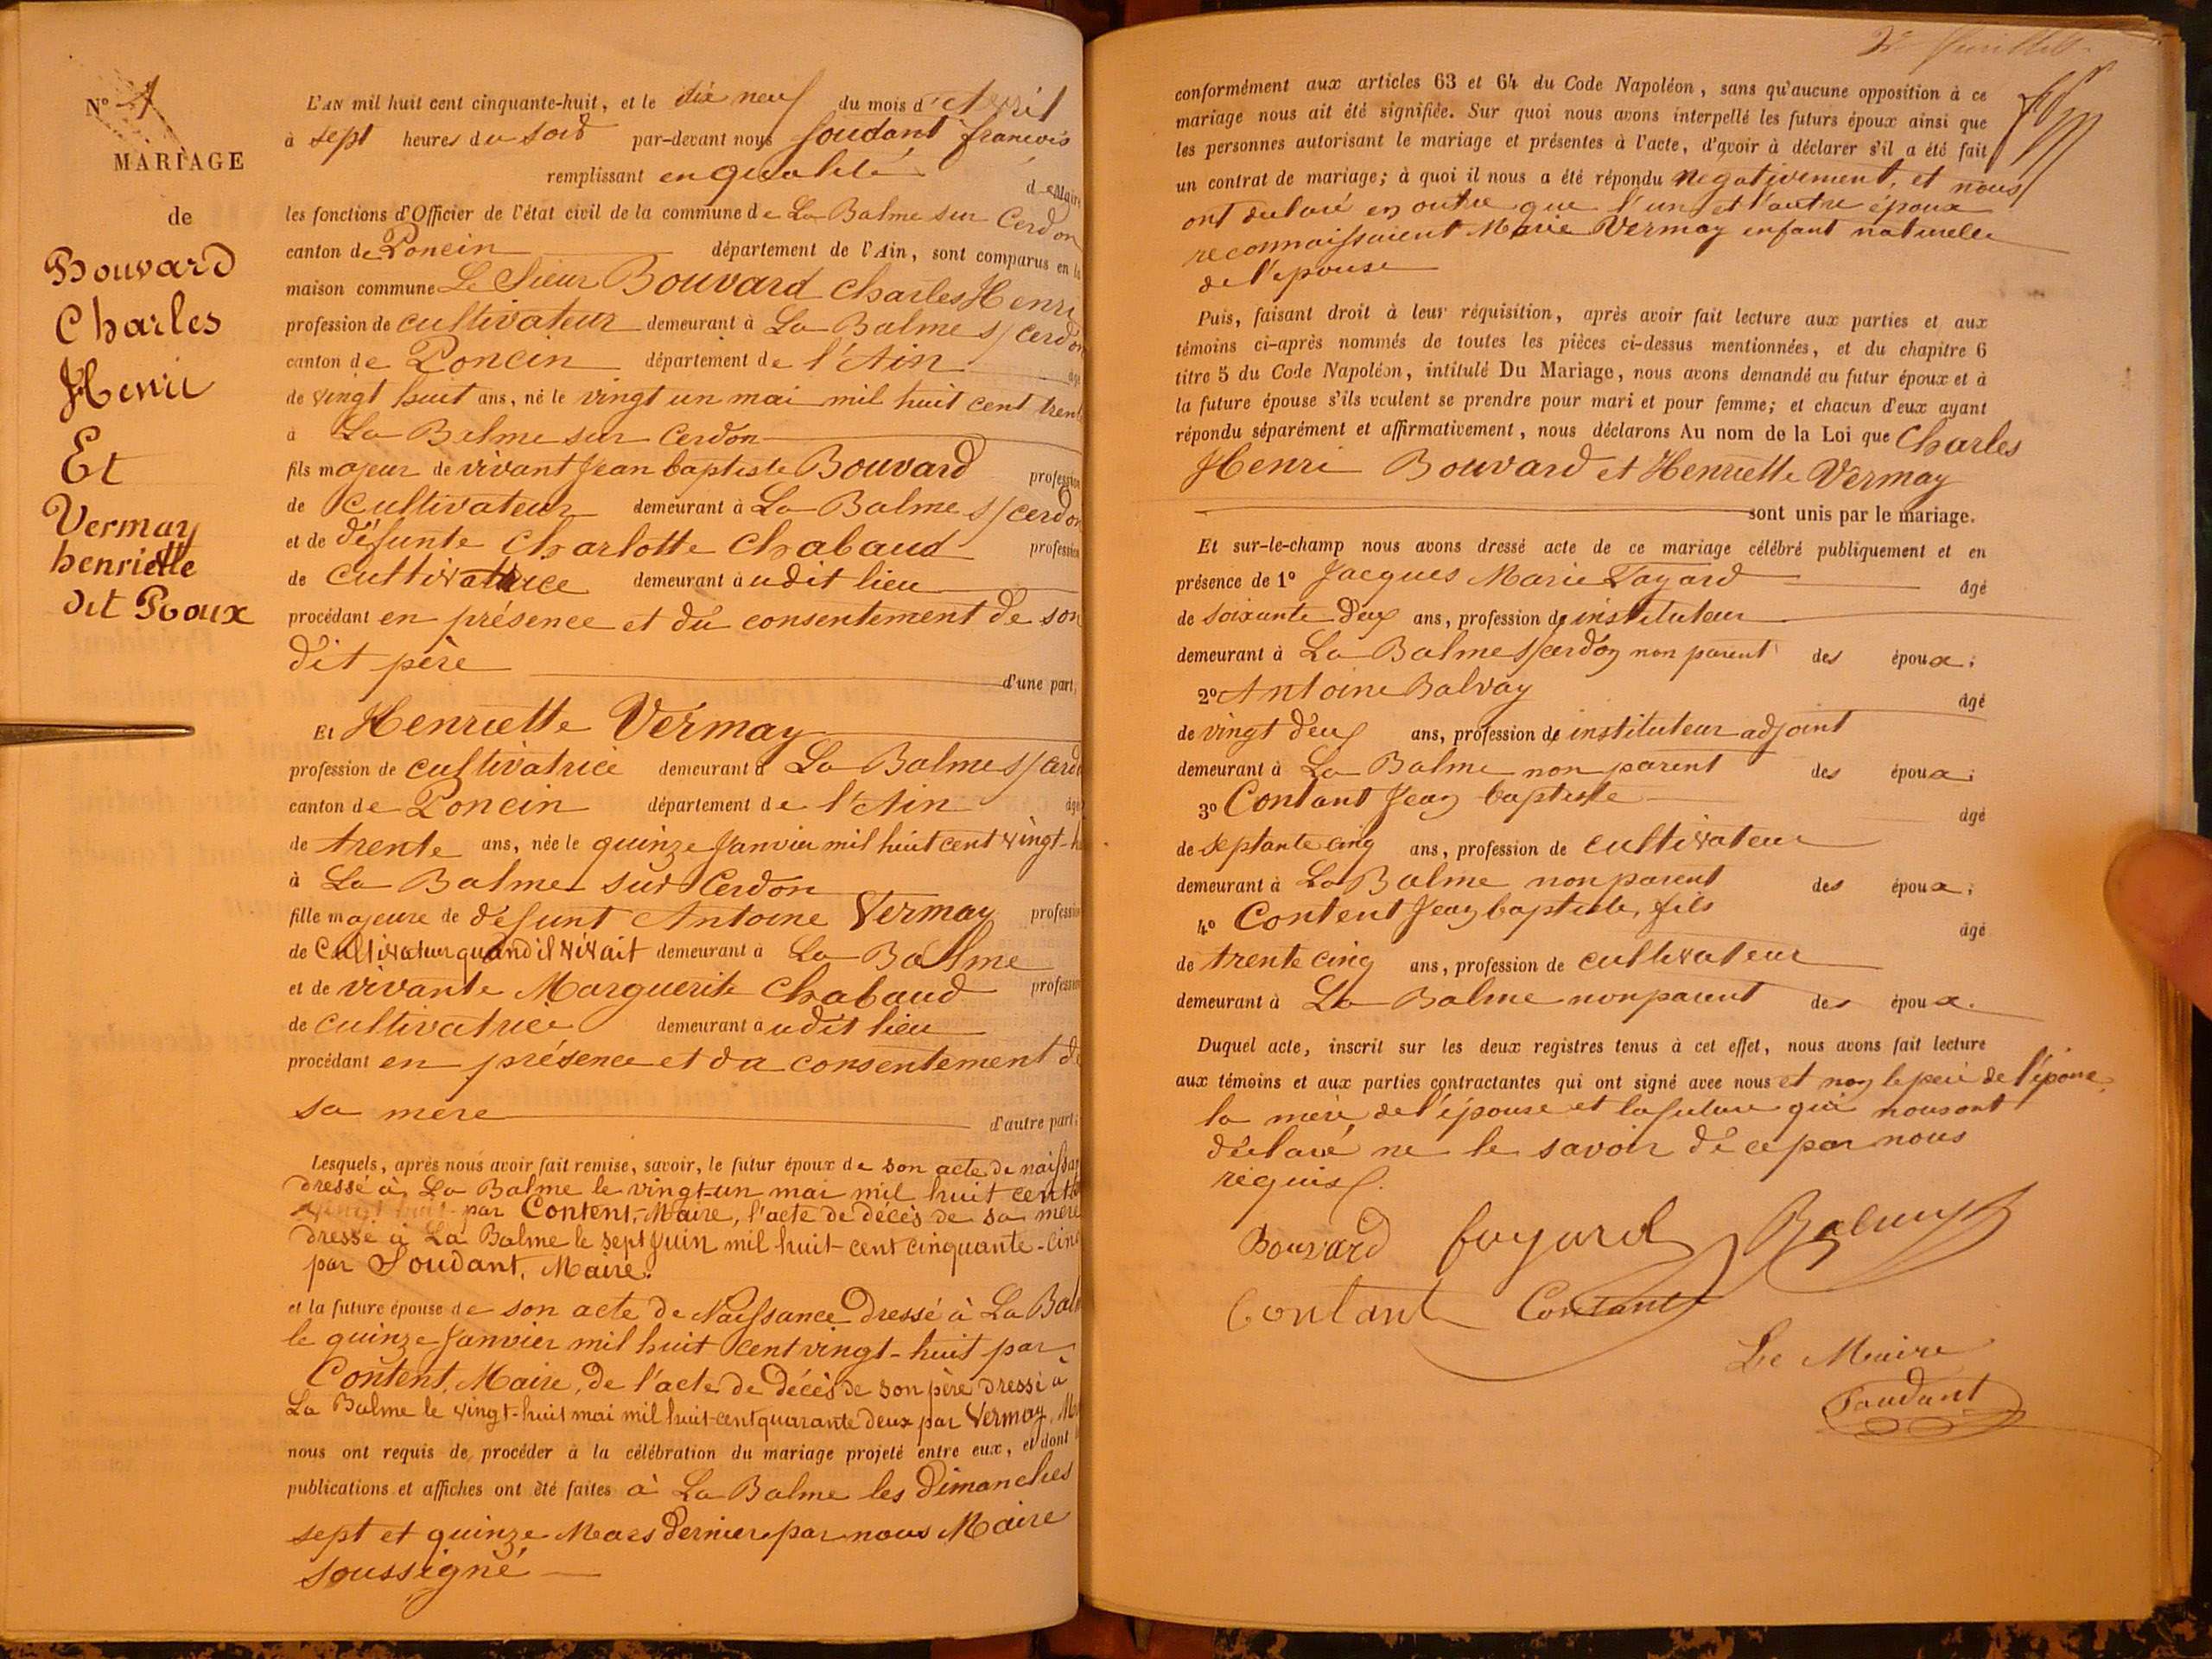 N° 1
MARIAGE
de
Bouvard
Charles
Henri
Et
Vermay
henriette
dit Roux
L'AN mil huit cent cinquante-huit, et le dix neuf du mois d'Avril
à sept heures du soir par-devant nous Soudant francois
remplissant en qualité de Maire
les fonctions d'Officier de l'état civil de la commune de La Balme sur Cerdon
canton de Poncin département de l'Ain, sont comparus en la
maison commune Le Sieur Bouvard Charles Henri
profession de cultivateur demeurant à La Balme s/ cerdon
canton de Poncin département de l'Ain âgé
de vingt huit ans, né le vingt un mai mil huit cent trente
à La Balme sur Cerdon
fils majeur de vivant Jean baptiste Bouvard profession
de cultivateur demeurant à La Balme s/ cerdon
et de défunte Charlotte Chabaud profession
de cultivatrice demeurant audit lieu
procédant en présence et du consentement de son
dit père d'une part,
Et Henriette Vermay
profession de cultivatrice demeurant à La Balme s/ cerdo
canton de Poncin département de l'Ain âgé
de trente ans, née le quinze Janvier mil huit cent vingt-h
à La Balme sur Cerdon
fille majeure de défunt Antoine Vermay profession
de Cultivateur quand il vivait demeurant à La Balme
et de vivante Marguerite Chabaud profession
de cultivatrice demeurant audit lieu
procédant en présence et du consentement de
sa mere d'autre part;
Lesquels, après nous avoir fait remise, savoir, le futur époux de son acte de naissan
dressé à La Balme le vingt-un mai mil huit cent
par Content, Maire, l'acte de décès de sa mère
dressé à La Balme le sept Juin mil huit-cent cinquante-cinq
par Soudant, Maire.
et la future épouse de son acte de Naissance dressé à La Balm
le quinze Janvier mil huit cent vingt-huit par
Content, Maire, de l'acte de décès de son père dressé à
La Balme le vingt-huit mai mil huit-cent quarante deux par Vermay, M
nous ont requis de procéder à la célébration du mariage projeté entre eux, et dont
publications et affiches ont été faites à La Balme les dimanches
sept et quinze Mars dernier par nous Maire
soussigné
conformément aux articles 63 et 64 du Code Napoléon, sans qu'aucune opposition à ce
mariage nous ait été signifiée. Sur quoi nous avons interpellé les futurs époux ainsi que
les personnes autorisant le mariage et présentes à l'acte, d'avoir à déclarer s'il a été fait
un contrat de mariage; à quoi il nous a été répondu négativement, et nous
ont declaré en outre que l'un et l'autre époux
reconnaissaient Marie Vermay enfant naturelle
de l'épouse
Puis, faisant droit à leur réquisition, après avoir fait lecture aux parties et aux
témoins ci-après nommés de toutes les pièces ci-dessus mentionnées, et du chapitre 6
titre 5 du Code Napoléon, intitulé Du Mariage, nous avons demandé au futur époux et à
la future épouse s'ils veulent se prendre pour mari et pour femme; et chacun d'eux ayant
répondu séparément et affirmativement, nous déclarons Au nom de la Loi que Charles
Henri Bouvard et Henriette Vermay
sont unis par le mariage.
Et sur-le-champ nous avons dressé acte de ce mariage célébré publiquement et en
présence de 1° Jacques Marie Fayard âgé
de soixante deux ans, profession de instituteur
demeurant à La Balme s/cerdon non parent des époux;
2° Antoine Balvay âgé
de vingt deux ans, profession de instituteur adjoint
demeurant à La Balme non parent des époux;
3° Contant Jean baptiste âgé
de septante cinq ans, profession de cultivateur
demeurant à La Balme non parent des époux;
4° Content Jean baptiste, fils âgé
de trente cinq ans, profession de cultivateur
demeurant à La Balme non parent des époux.
Duquel acte, inscrit sur les deux registres tenus à cet effet, nous avons fait lecture
aux témoins et aux parties contractantes qui ont signé avec nous et non le père de l'époux
la mère de l'épouse et la future qui nous ont
déclaré ne le savoir de ce par nous
requis.
Bouvard fayard Balvay
Contant Contant
Le Maire
Soudant